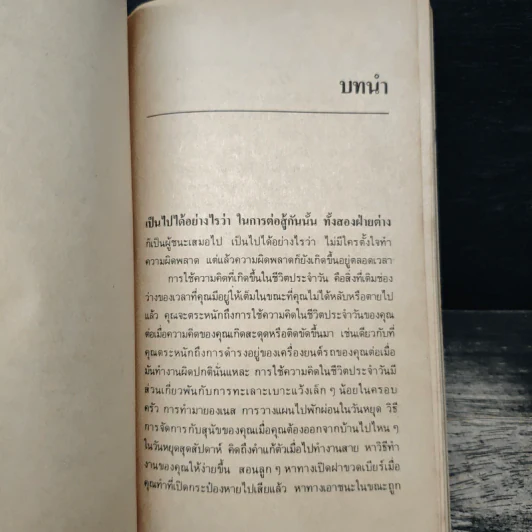 บทนำ
เป็นไปได้อย่างไรว่า ในการต่อสู้กันนั้น ทั้งสองฝ่ายต่าง
ก็เป็นผู้ชนะเสมอไป เป็นไปได้อย่างไรว่า ไม่มีใครตั้งใจทำ
ความผิดพลาด แต่แล้วความผิดพลาดก็ยังเกิดขึ้นอยู่ตลอดเวลา
การใช้ความคิดที่เกิดขึ้นในชีวิตประจำวัน คือสิ่งที่เติมช่อง
ว่างของเวลาที่คุณมีอยู่ให้เต็มในขณะที่คุณไม่ได้หลับหรือตายไป
แล้ว คุณจะตระหนักถึงการใช้ความคิดในชีวิตประจำวันของคุณ
ต่อเมื่อความคิดของคุณเกิดสะดุดหรือติดขัดขึ้นมา เช่นเดียวกับที่
คุณตระหนักถึงการดำรงอยู่ของเครื่องยนต์รถของคุณต่อเมื่อ
มันทำงานผิดปกตินั่นแหละ การใช้ความคิดในชีวิตประจำวันมี
ส่วนเกี่ยวพันกับการทะเลาะเบาะแว้งเล็ก ๆ น้อยในครอบ
ครัว การทำมายองเนส การวางแผนไปพักผ่อนในวันหยุด วิธี
การจัดการกับสุนัขของคุณเมื่อคุณต้องออกจากบ้านไปไหน ๆ
ในวันหยุดสุดสัปดาห์ คิดถึงคำแก้ตัวเมื่อไปทำงานสาย หาวิธีทำ
งานของคุณให้ง่ายขึ้น สอนลูก ๆ หาทางเปิดฝาขวดเบียร์เมื่อ
คุณทำที่เปิดกระป๋องหายไปเสียแล้ว หาทางเอาชนะในขณะถูก